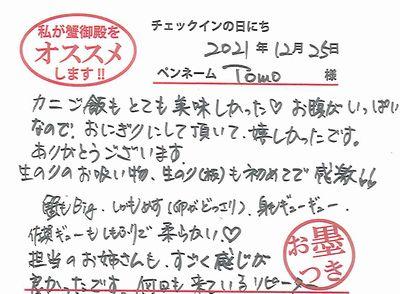 私が蟹御殿を
オススメ
します!!
チェックインの日にち
2021年12月25日
ペンネーム Tomo 様
カニご飯もとても美味しかった♡お腹がいっぱい
なので、おにぎりにして頂いて、嬉しかったです。
ありがとうございます。
生のりのお吸い物、生のり(板)も初めてで感激!!
蟹もBig、しかもめす(卵がどっさり)、身もギューギュー
佐賀ギューもしもふりで柔らかい♡
担当のお姉さんも、すごく感じが
良かったです。何回も来ているリピーター
お墨
つき